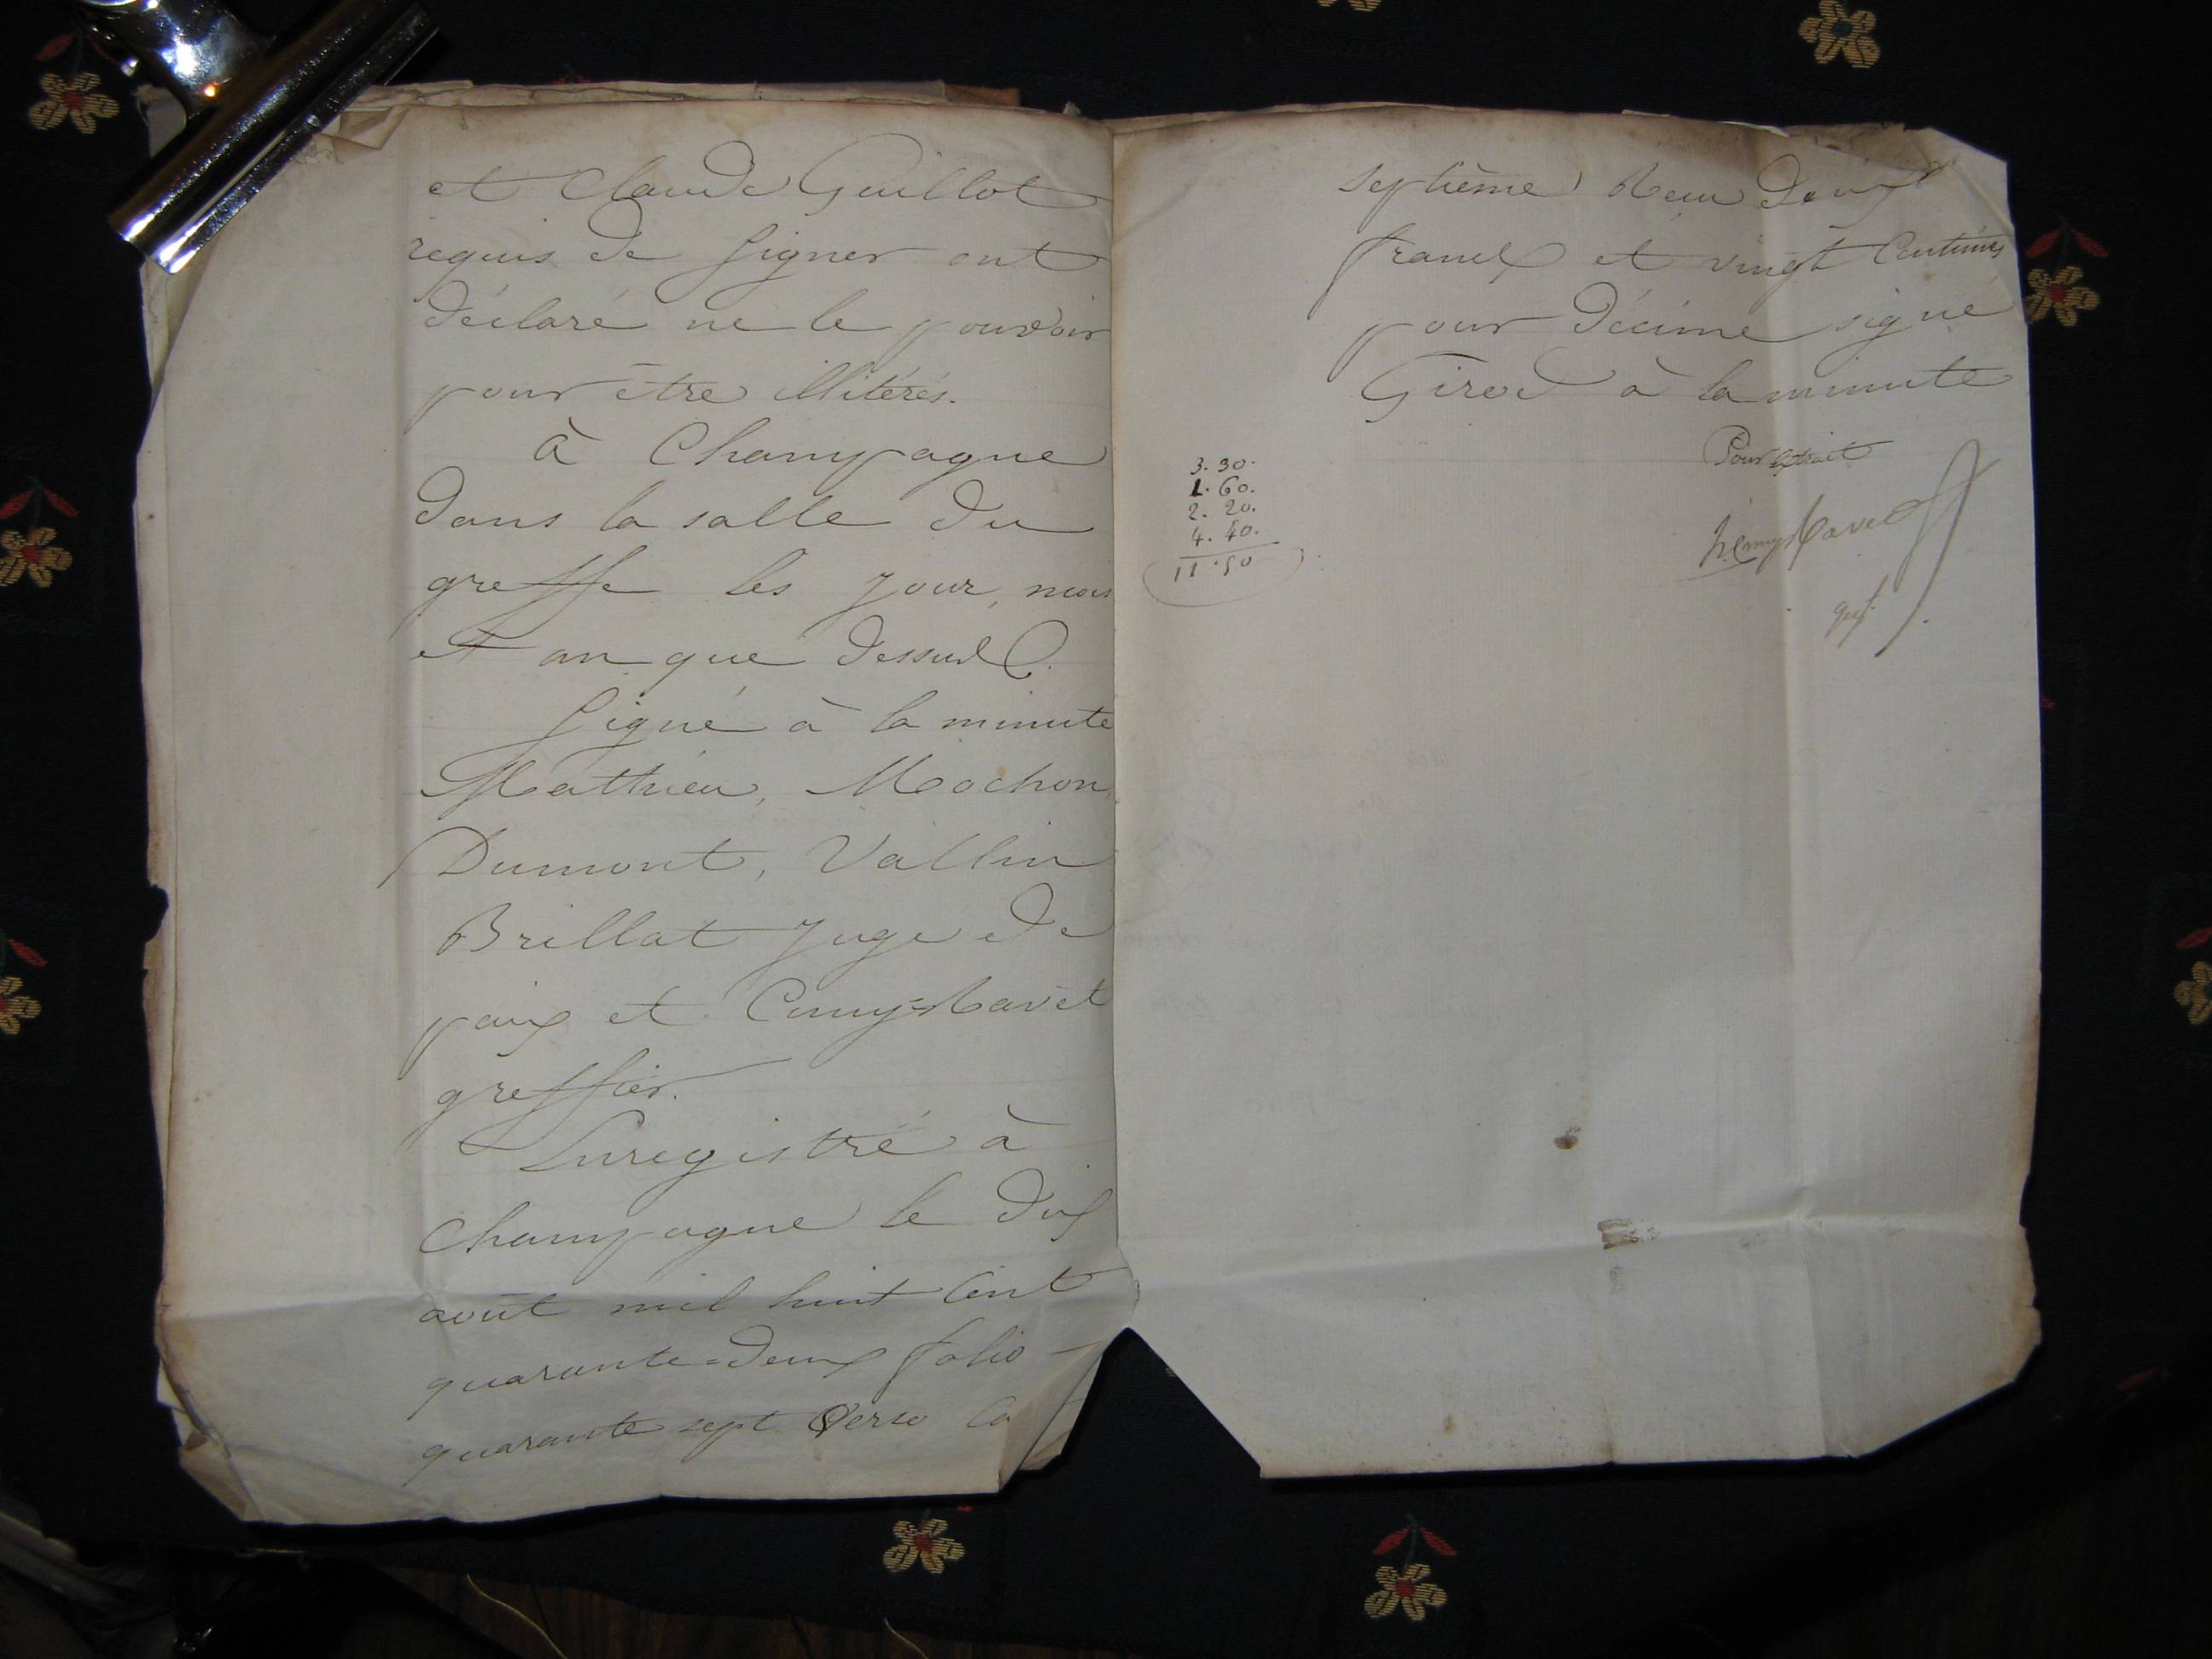 et Claude Guillot
requis de signer ont
déclaré ne le pouvoir
pour être illitérés.
à Champagne
dans la salle du
greffe les jour, mois
et an que dessus.
Signé à la minute
Mathieu, Mochon,
Dumont, Vallin
Brillat Juge de
paix et Cumy=Ravet
greffier.
Enregistré à
Champagne le dix
août mil huit cent
quarante=deux folio
quarante sept verso Ca
septième Reçu deux
francs et vingt centimes
pour décime signé
Girod à la minute
Pour extrait
3. 30.
1. 60.
2. 20.
4. 40.
11.50
gref.